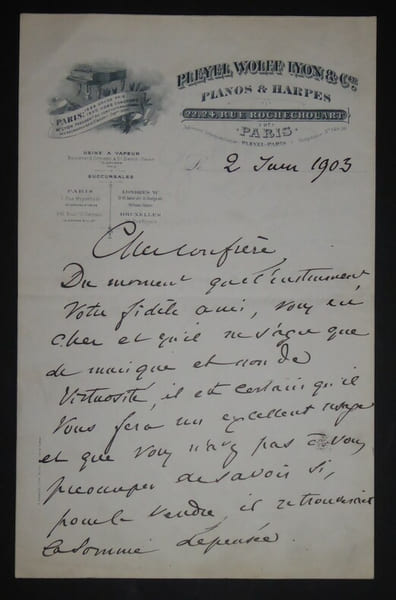 PLEYEL WOLFF LYON & Cie
PIANOS & HARPES
22.24, RUE ROCHECHOUART
PARIS
PLEYEL-PARIS
PARIS
USINE A VAPEUR
SUCCURSALES
PARIS
LONDRES W
BRUXELLES
2 Juin 1903
Cher confrère,
Du moment que l'instrument
votre fidèle ami, vous est
cher et qu'il ne s'agit que
de musique et non de
virtuosité, il est certain qu'il
vous fera un excellent usage
et que vous n'avez pas à vous
préoccuper de savoir si,
pour le vendre, il retrouverait
la somme dépensée.